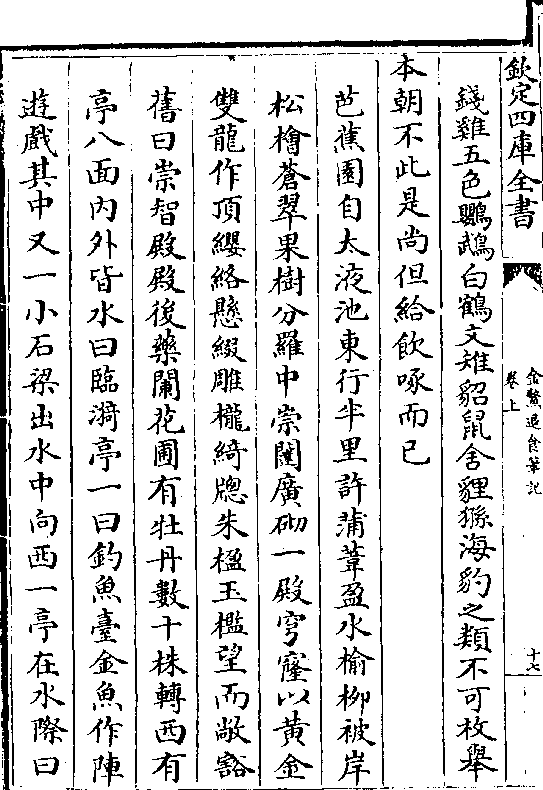 欽定四庫全書
金鰲退食筆記
卷上
十七
錢雞五色鸚鵡白鶴文雉貂鼠舍貍猻海豹之類不可枚舉
本朝不此是尚但給飲啄而已
芭蕉園自太液池東行半里許蒲葦盈水榆柳被岸
松檜蒼翠果樹分羅中崇闥廣砌一殿穹窿以黃金
雙龍作頂纓絡懸綴雕櫳綺牕朱楹玉檻望而敞豁
舊曰崇智殿殿後藥闌花圃有牡丹數十株轉西有
亭八面內外皆水曰臨漪亭一曰釣魚臺金魚作陣
遊戲其中又一小石梁出水中向西一亭在水際曰